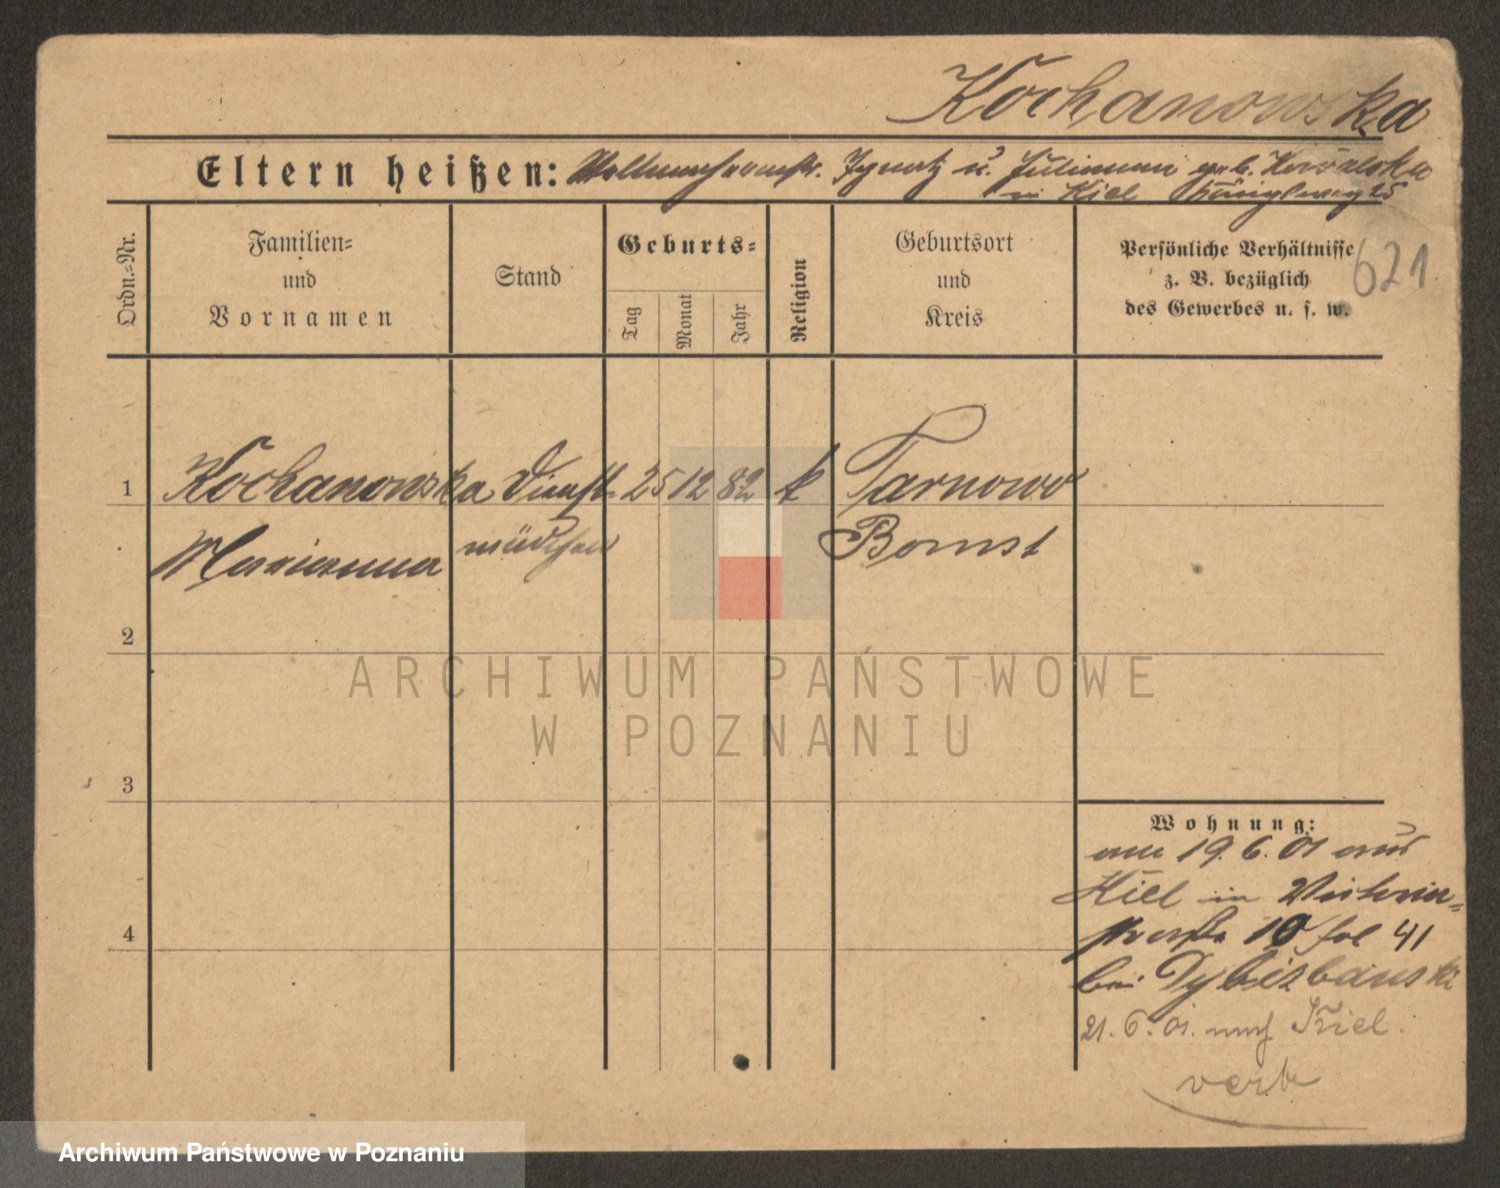 Kochanowska
Eltern heißen: Ignatz u. Julianna geb. Kowalska
in Kiel 25
Ordn.=Nr.
Familien=
und
Vornamen
Stand
Geburts=
Tag
Monat
Jahr
Religion
Geburtsort
und
Kreis
Persönliche Verhältnisse
z. B. bezüglich
des Gewerbes u. s. w.
621
1 Kochanowska Dienst 25 12 82 k Tarnowo
Marianna mädchen Bomst
2
3
4
Wohnung:
am 19. 6. 01 aus
Kiel in Victoria=
straße 10 fol 41
bei Dybizbanski
21. 6. 01. nach Kiel.
verb
ARCHIWUM PAŃSTWOWE
W POZNANIU
Archiwum Państwowe w Poznaniu